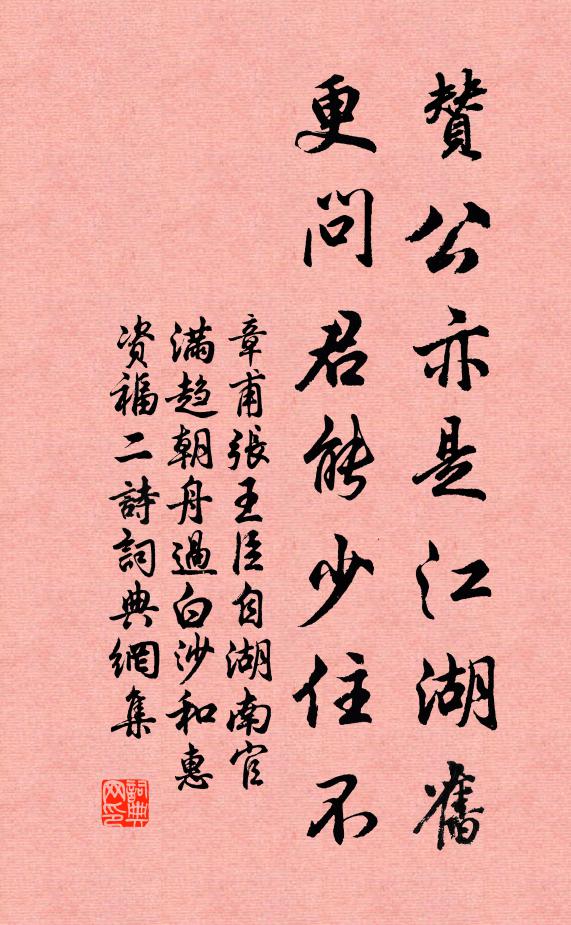 贊公亦是江湖舊
更問君能少住不
章甫張王臣自湖南官
满趋朝舟過白沙和惠
资福二詩詞典網集
詞典
网印